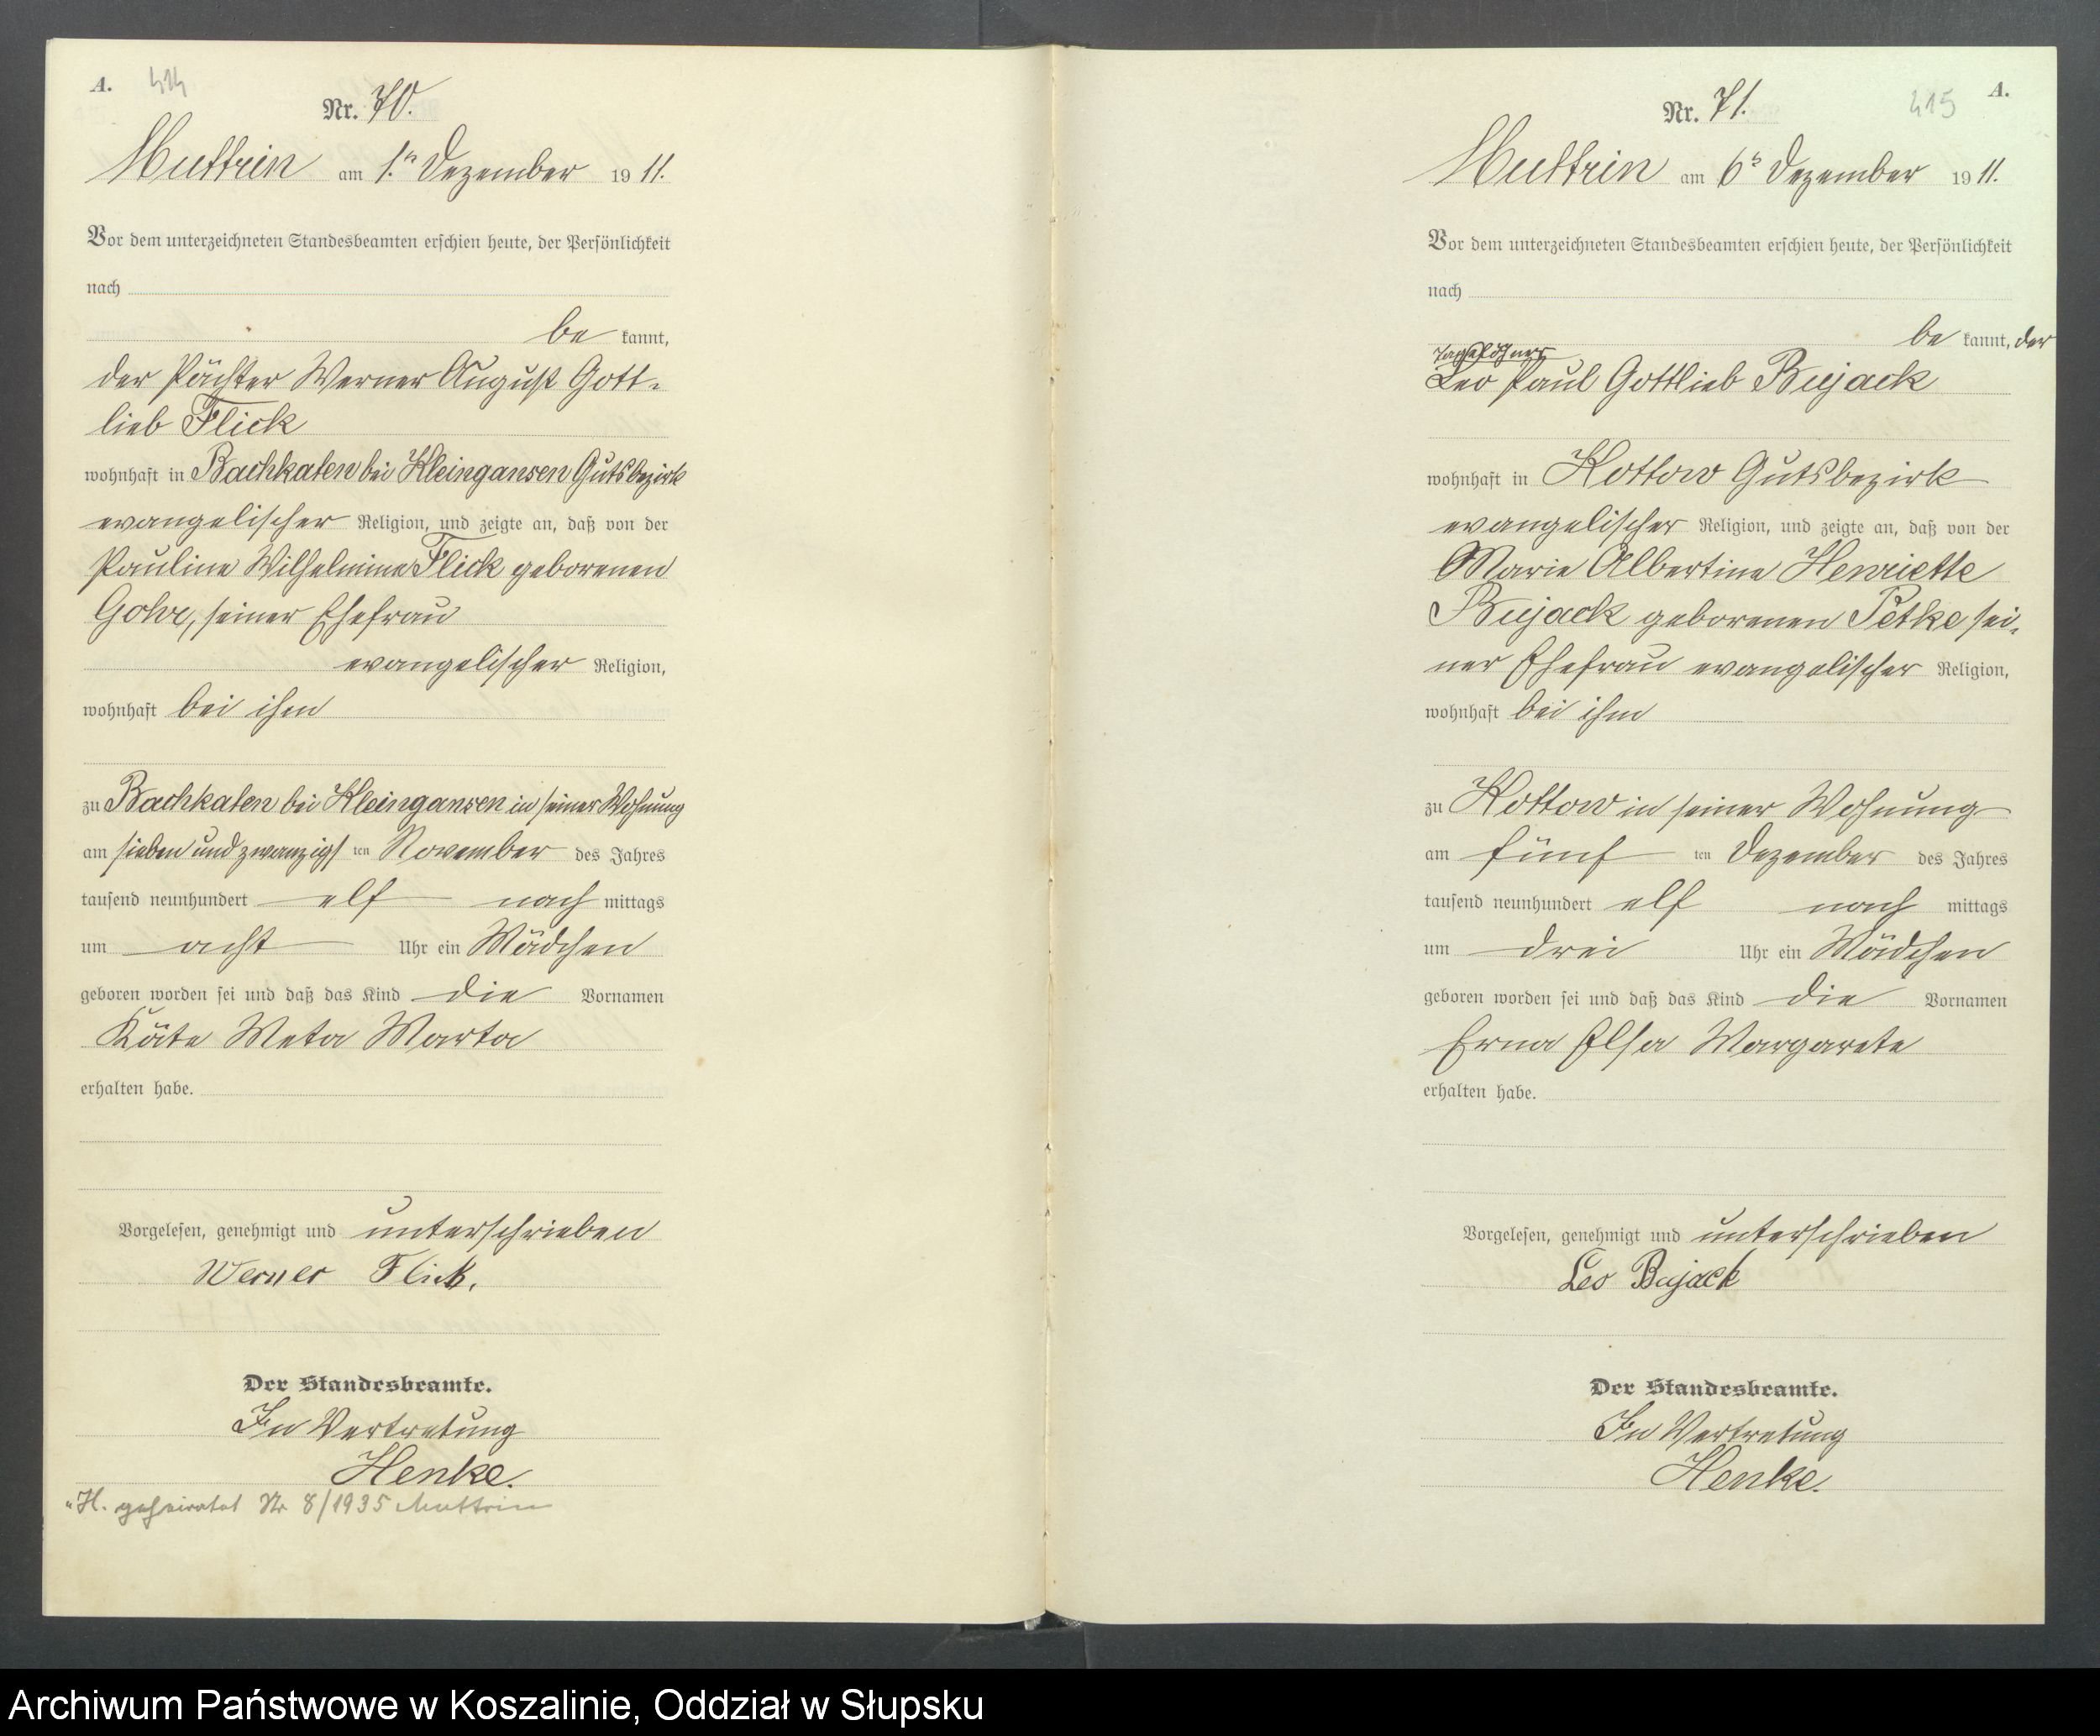 A. 414
Nr. 70.
Muttrin am 1.n Dezember 1911.
Vor dem unterzeichneten Standesbeamten erschien heute, der Persönlichkeit
nach
be kannt,
der Pächter Werner August Gott-
lieb Flick
wohnhaft in Bachkaten bei Kleingansen Gutsbezirk
evangelischer Religion, und zeigte an, daß von der
Pauline Wilhelmine Flick geborenen
Gohr, seiner Ehefrau
evangelischer Religion,
wohnhaft bei ihm
zu Bachkaten bei Kleingansen in seiner Wohnung
am sieben und zwanzigsten November des Jahres
tausend neunhundert elf nachmittags
um acht Uhr ein Mädchen
geboren worden sei und daß das Kind die Vornamen
Käte Meta Marta
erhalten habe.
Vorgelesen, genehmigt und unterschrieben
Werner Flick.
Der Standesbeamte.
In Vertretung
Henke.
"H. geheiratet Nr 8/1935 Muttrin
Nr. 71. 415 A.
Muttrin am 6n Dezember 1911.
Vor dem unterzeichneten Standesbeamten erschien heute, der Persönlichkeit
nach
be kannt, der
Tagelöhner
Leo Paul Gottlieb Bujack
wohnhaft in Kottow Gutsbezirk
evangelischer Religion, und zeigte an, daß von der
Marie Albertine Henriette
Bujack geborenen Petke sei-
ner Ehefrau evangelischer Religion,
wohnhaft bei ihm
zu Kottow in seiner Wohnung
am fünf ten Dezember des Jahres
tausend neunhundert elf nach mittags
um drei Uhr ein Mädchen
geboren worden sei und daß das Kind die Vornamen
Erna Elsa Margarete
erhalten habe.
Vorgelesen, genehmigt und unterschrieben
Leo Bujack
Der Standesbeamte.
In Vertretung
Henke.
Archiwum Państwowe w Koszalinie, Oddział w Słupsku